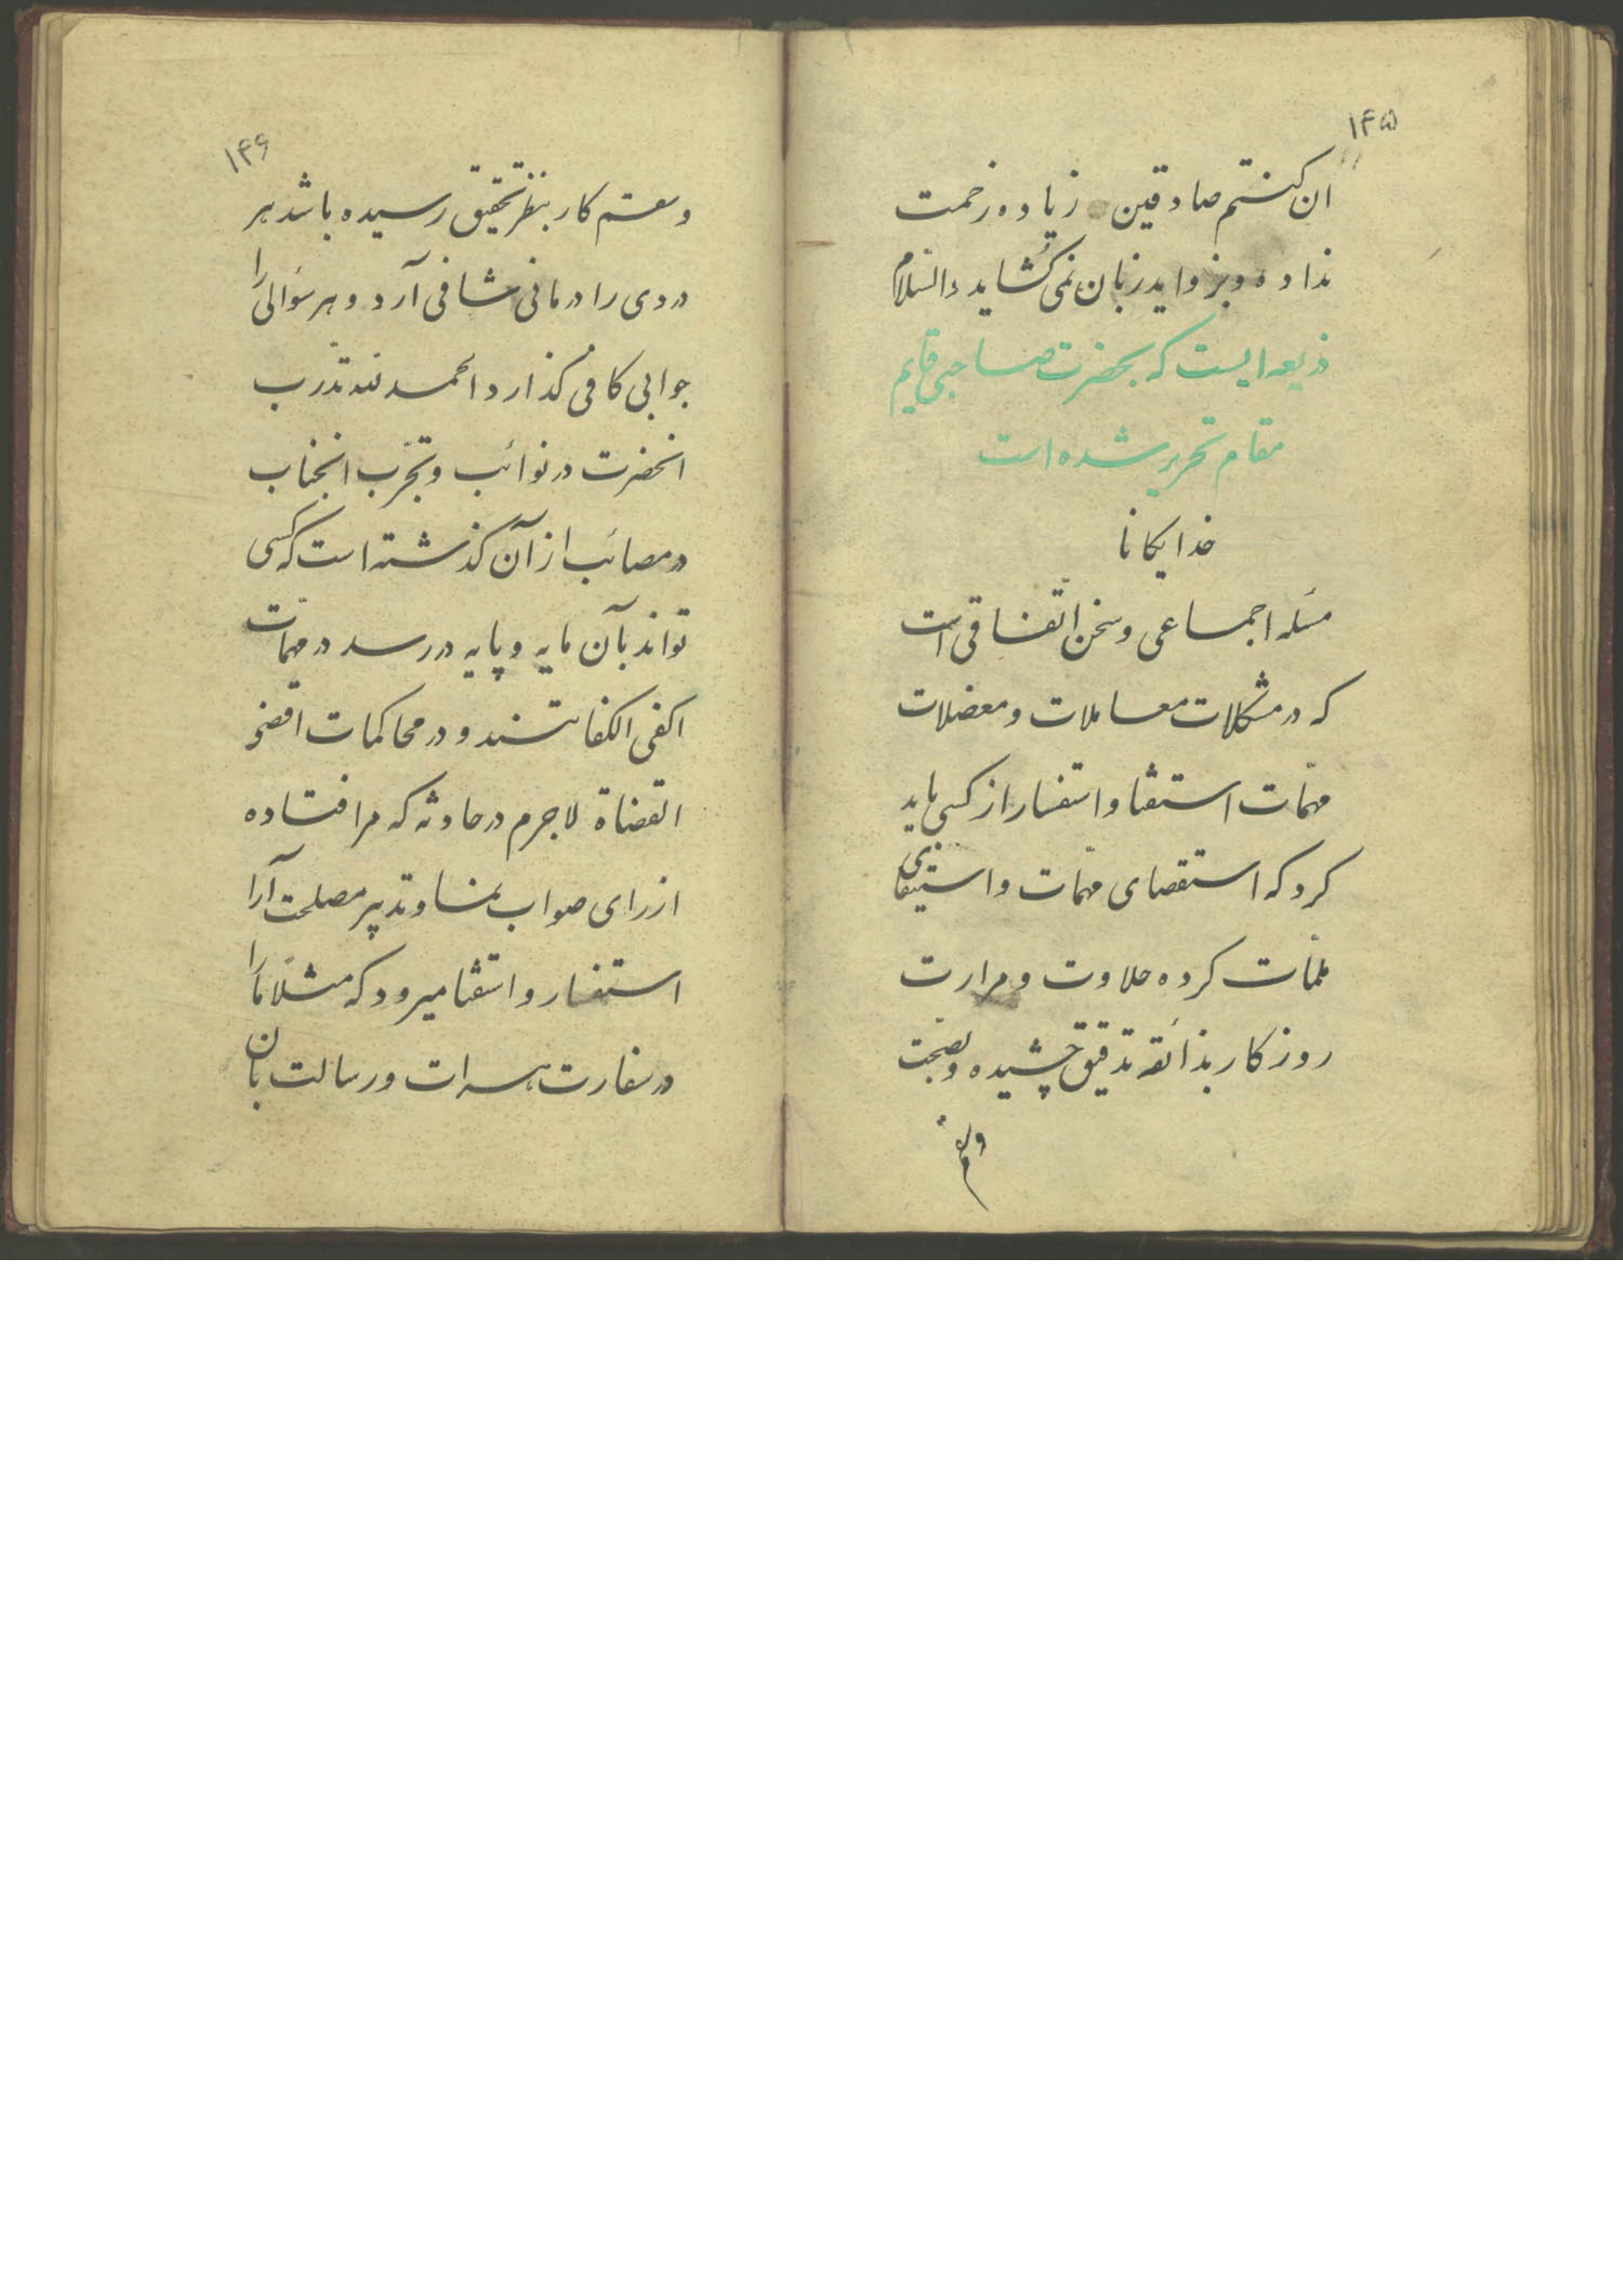 ۱۴۵
ان کنتم صادقین زیاده زحمت
نداده و بزواید زبان نمی‌کشاید والسلام
ذریعه ایست که بحضرت صاحبی قایم
مقام تحریر شده است
خدایکانا
مسئله اجماعی و سخن اتفاقی است
که در مشکلات معاملات و معضلات
مهمّات استفتا و استفسار از کسی باید
کرد که استقصای مهمّات و استیفای
ملمّات کرده حلاوت و مرارت
روزکار بذائقه تدقیق چشیده و صحّت
و سقم
۱۴۶
و سقم کار بنظر تحقیق رسیده باشد هر
دردی را درمانی شافی آرد و هر سؤالی را
جوابی کافی کذارد الحمد لله تدرّب
انحضرت در نوائب و تجرّب انجناب
در مصائب از آن کذشته است که کسی
تواند بآن مایه و پایه در رسد در مهمّات
اکفی الکفاتند و در محاکمات اقضی
القضاة لاجرم در حادثه که مرا فتاده
از رای صواب نما و تدبیر مصلحت آرا
استفسار و استفتا میرود که مثلاً ما را
در سفارت هرات و رسالت بآن